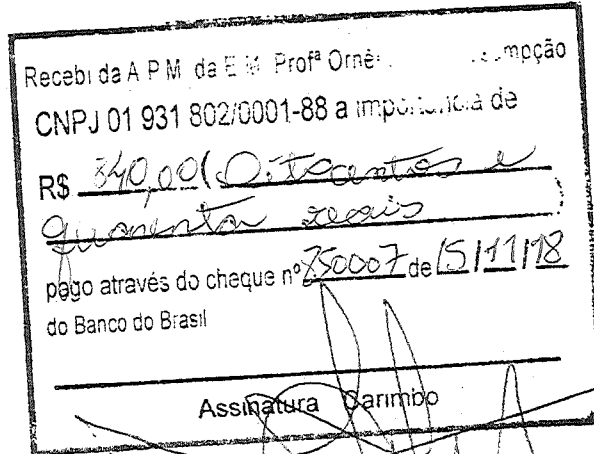 Recebi da A P M da E M Profª
CNPJ 01 931 802/0001-88 a importância de
R$ 840,00 (Oitocentos e
quarenta reais
pago através do cheque nº 850007 de 15/11/18
do Banco do Brasil
Assinatura Carimbo